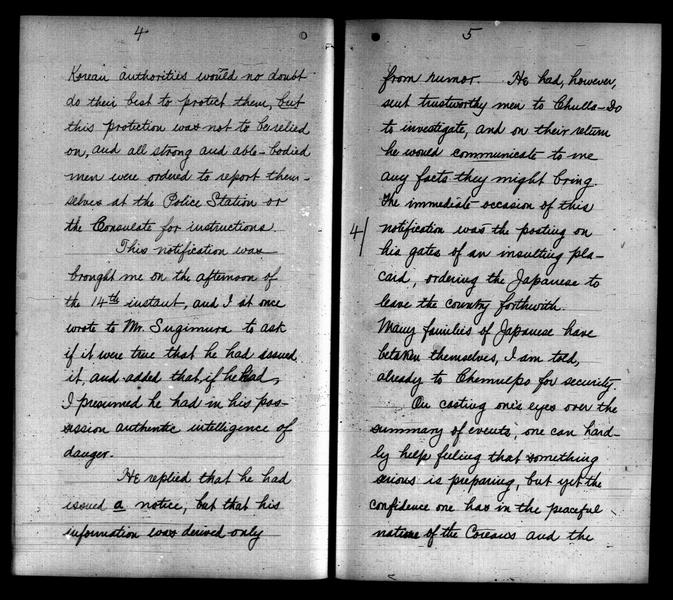 4
Korean authorities would no doubt
do their best to protect them, but
this protection was not to be relied
on, and all strong and able-bodied
men were ordered to report them-
selves at the Police Station or
the Consulate for instructions
This notification was
brought me on the afternoon of
the 14th instant, and I at once
wrote to Mr. Sugimura to ask
if it were true that he had issued
it, and added that, if he had,
I presumed he had in his pos-
session authentic intelligence of
danger.
He replied that he had
issued a notice, but that his
information was derived only
5
from rumor. He had, however,
sent trustworthy men to Chulla-Do
to investigate, and on their return
he would communicate to me
any facts they might bring.
The immediate occasion of this
4/ notification was the posting on
his gates of an insulting pla-
card, ordering the Japanese to
leave the country forthwith.
Many families of Japanese have
betaken themselves, I am told,
already to Chemulpo for security.
On casting one's eyes over the
summary of events, one can hard-
ly help feeling that something
serious is preparing, but yet the
confidence one has in the peaceful
nature of the Coreans and the